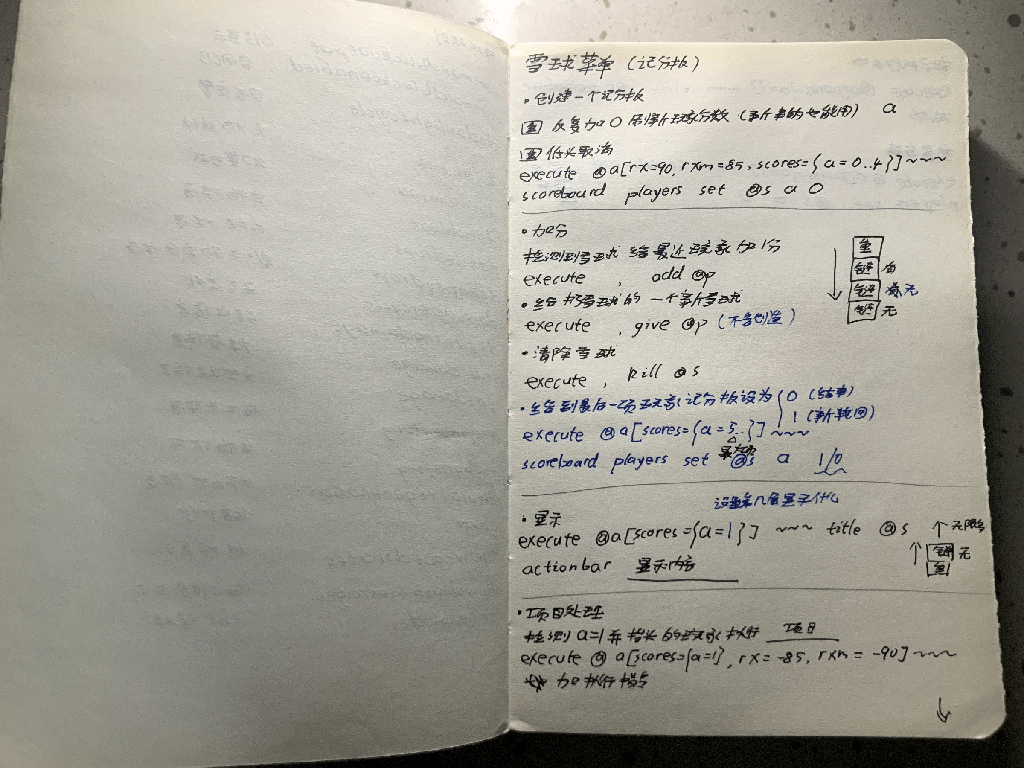 雪球菜单（记分板）
·创建一个记分板
反复加0 吊销玩家分数（新来的也能用） a
低头取消
execute @a[rx=90,rxm=85,scores={a=0..4}]~~~
scoreboard players set @s a 0
·加分
检测到雪球 给最近玩家加1分
execute , add @p
·给扔雪球的一个新雪球
execute , give @p（不含创造）
·清除雪球
execute , kill @s
链 有
链 无
链 无
·给到最后一项玩家记分板设为 0（结束）
1（新轮回）
execute @a[scores={a=5..}]~~~
最大
scoreboard players set @s a 1/0
设置第几显示什么
·显示
execute @a[scores={a=1}] ~~~ title @s
actionbar 显示内容
↑无限多
链 无
·项目处理
检测a=1并抬头的玩家执行 项目
execute @a[scores={a=1},rx=-85,rxm=-90]~~~
加执行指令